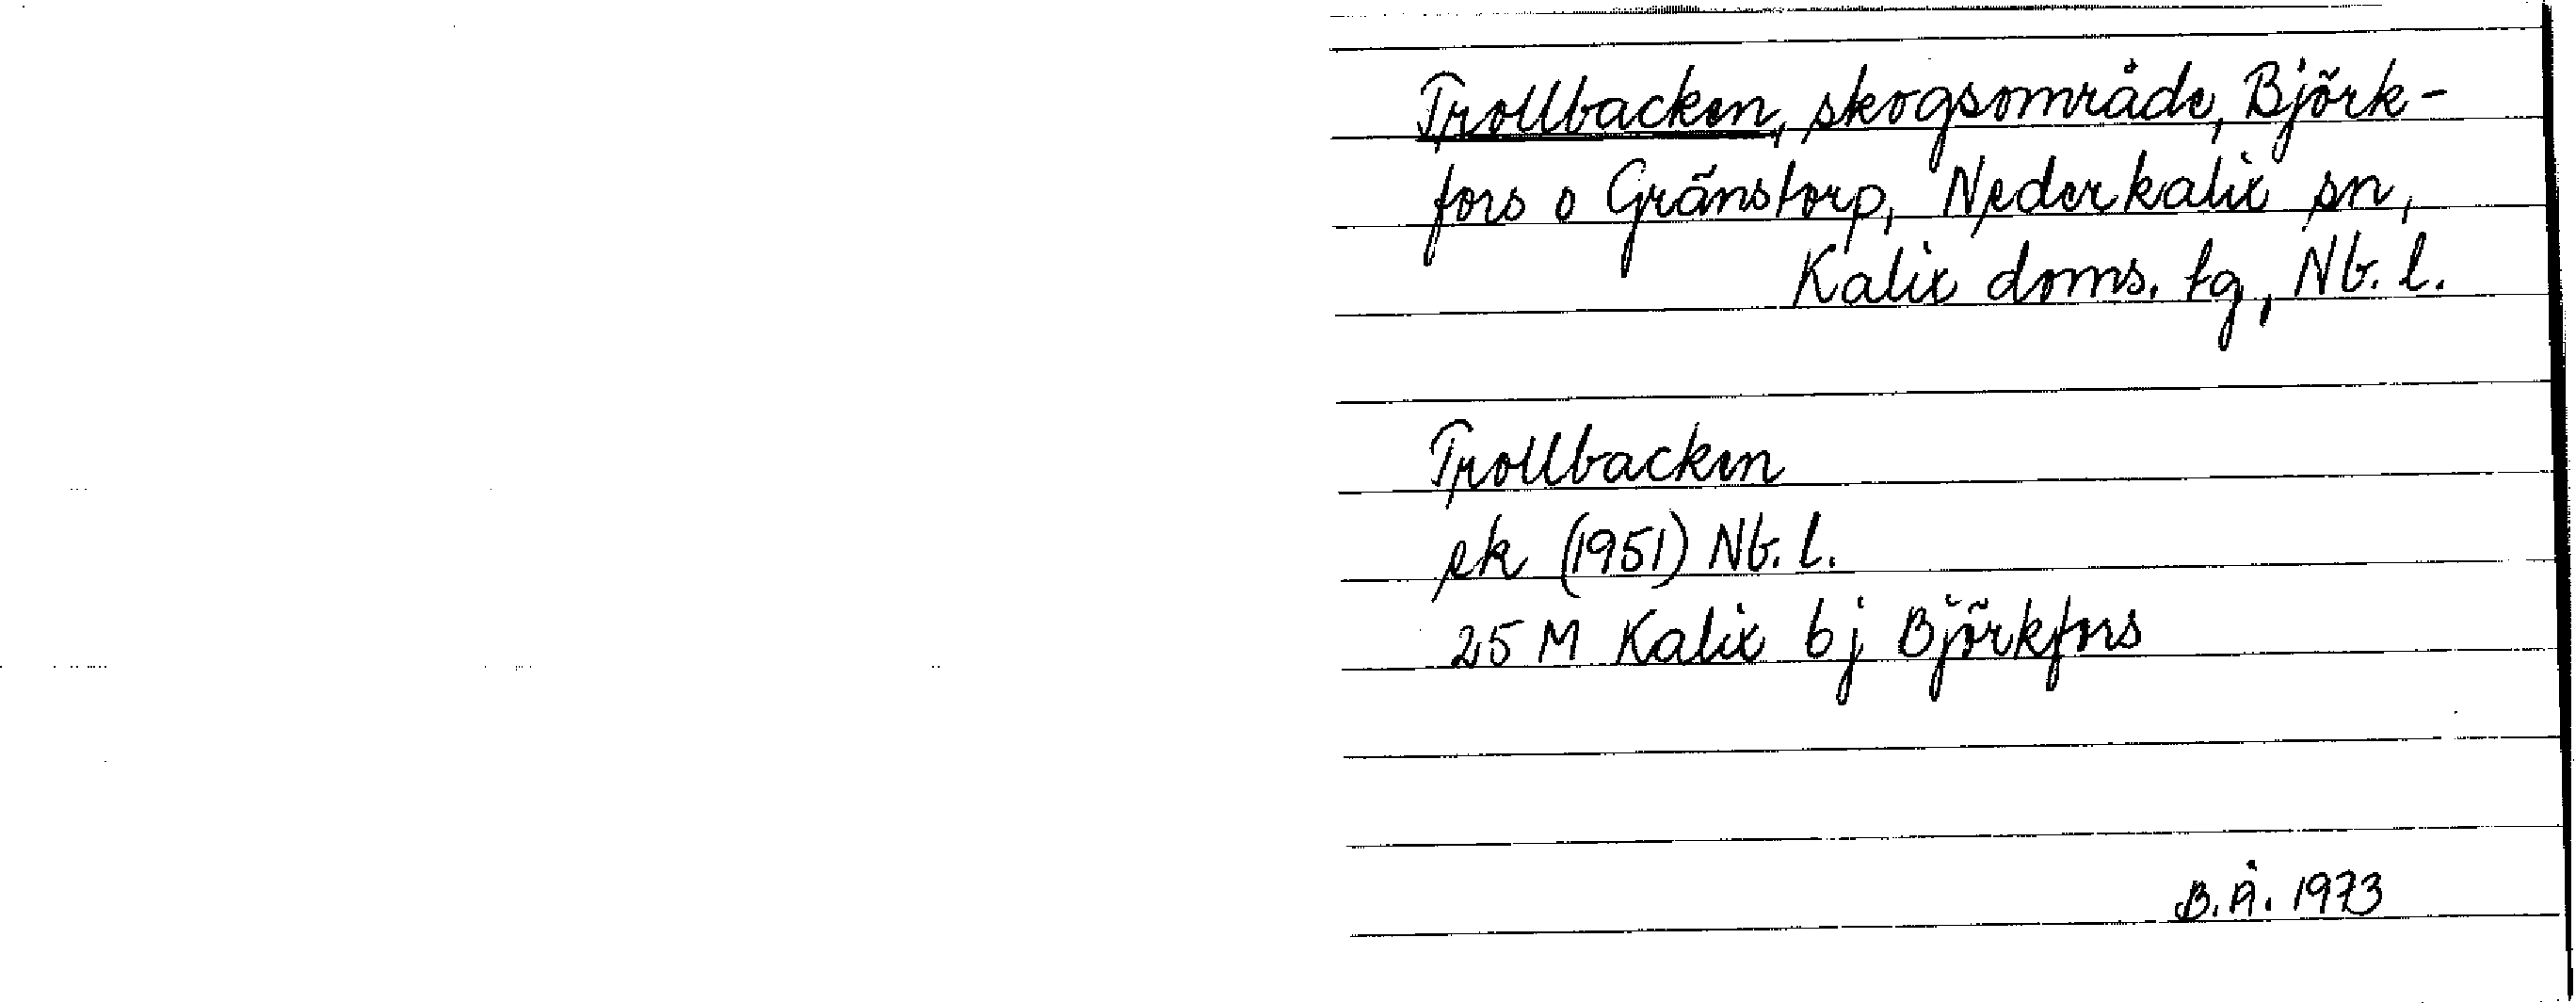 Trollbacken, skogsområde, Björk-
fors o Gränstorp, Nederkalix sn,
Kalix doms. tg, Nb. l.
Trollbacken
ek (1951) Nb. l.
25 M Kalix 6j Björkfors
B.Å. 1973